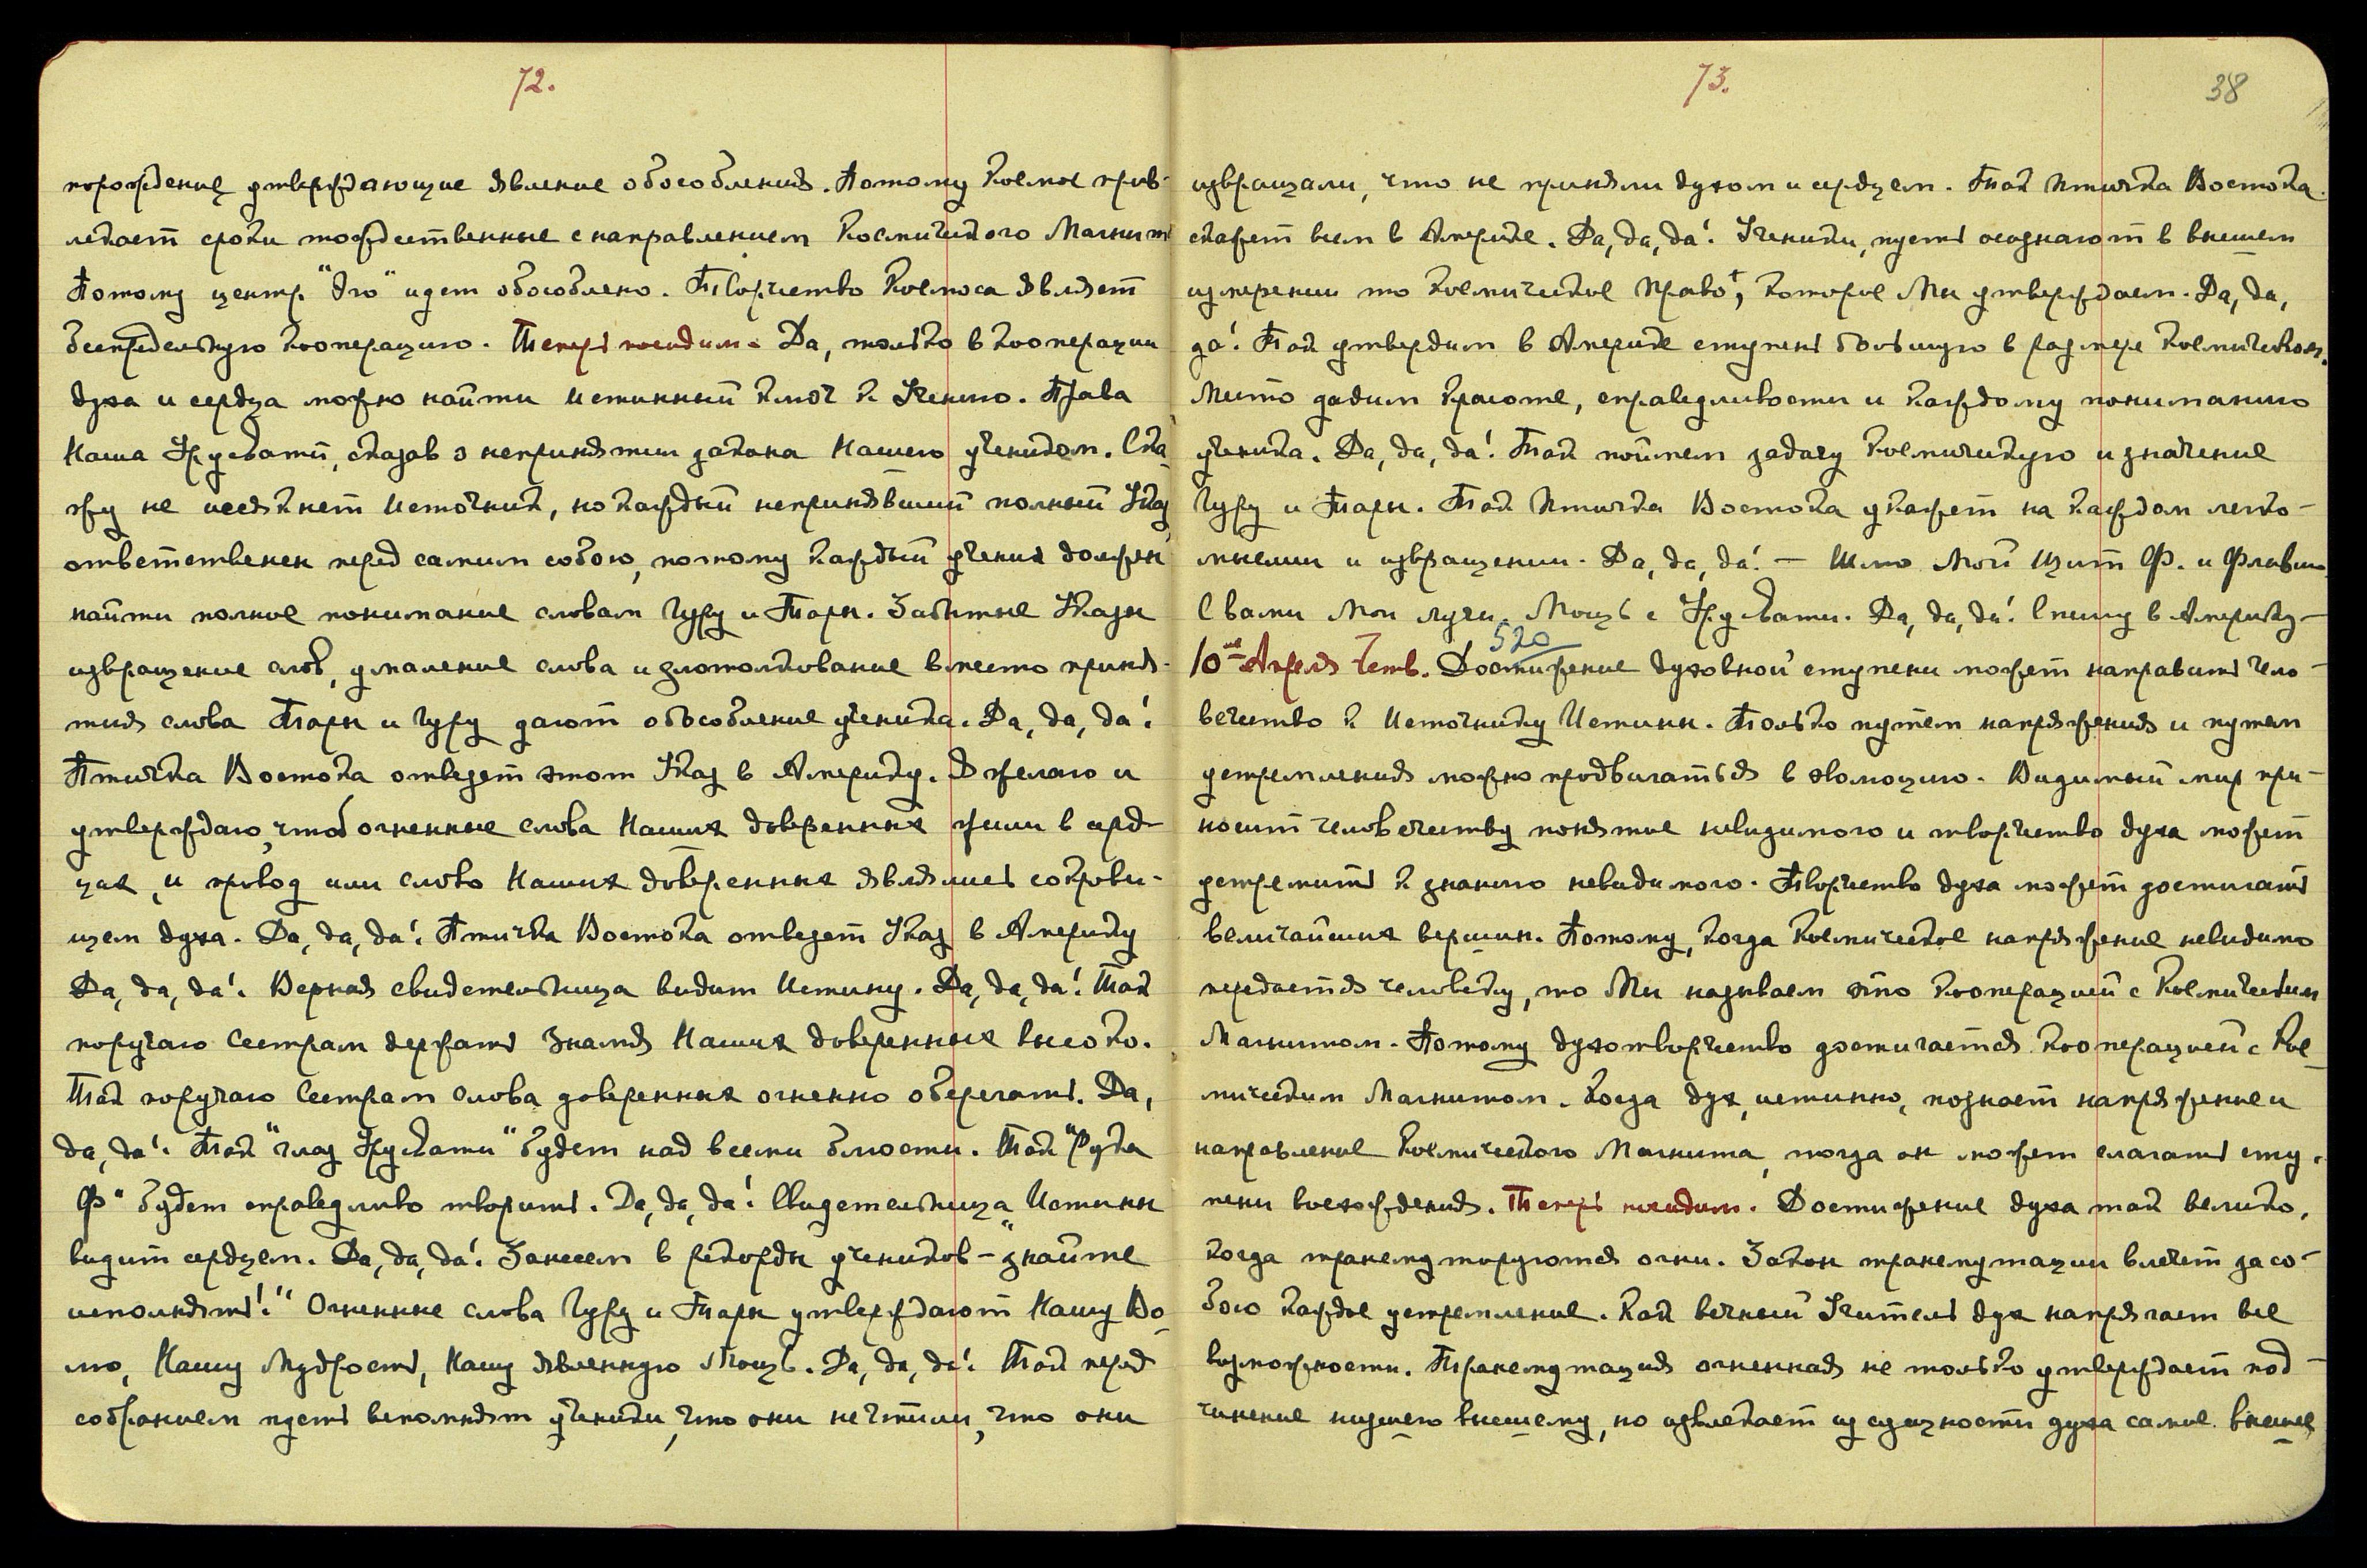 72.
порождение утверждающие явление обособления. Потому Космос прив-
лекает сроки тождественные с направлением Космического Магнита
Потому центр "эго" идет обособлено. Творчество Космоса являет
беспредельную кооперацию. Теперь посидим. Да, только в кооперации
духа и сердца можно найти истинный ключ к Учению. Права
Наша Урусвати, сказав о непринятии закона Нашего учеником. Ска-
жу не иссякнет Источник, но каждый непринявший полный Указ
ответственен перед самим собою, потому каждый ученик должен
найти полное понимание словам Гуру и Тары. Забытые Указы
извращение слов, умаление слова и злотолкование вместо приня-
тия слова Тары и Гуру дают обособление ученика. Да, да, да!
Птичка Востока отвезет этот Указ в Америку. Я желаю и
утверждаю, чтоб огненные слова Наших доверенных жили в серд-
цах, и провод или слово Наших доверенных являлись сокрови-
щем духа. Да, да, да! Птичка Востока отвезет Указ в Америку
Да, да, да! Верная свидетельница видит Истину. Да, да, да! Так
поручаю Сестрам держать Знамя Наших доверенных высоко.
Так поручаю Сестрам слова доверенных огненно оберегать. Да,
да, да! Так "глаз Урусвати" будет над всеми блюсти. Так "Рука
Ф" будет справедливо творить. Да, да, да! Свидетельница Истины
видит сердцем. Да, да, да! Занесем в рекорды учеников – "знайте
исполнять!" Огненные слова Гуру и Тары утверждают Нашу Во-
лю, Нашу Мудрость, Нашу явленную Мощь. Да, да, да! Так перед
собранием пусть вспомнят ученики, что они не чтили, что они
73.
38
извращали, что не приняли духом и сердцем. Так Птичка Востока
скажет всем в Америке. Да, да, да! Ученики, пусть осознают в высшем
измерении то Космическое Право, которое Мы утверждаем. Да, да,
да! Так утвердим в Америке ступень большую в размере Космическом.
Место дадим красоте, справедливости и каждому пониманию
ученика. Да, да, да! Так поймем задачу Космическую и значение
Гуру и Тары. Так Птичка Востока укажет на каждом легко-
мыслии и извращении. Да, да, да! – Шлю Мой Щит Ф. и Флавию
С вами Мои лучи. Мощь с Урусвати. Да, да, да! Спешу в Америку –
520
10ое Апреля Четв. Достижение духовной ступени может направить чело-
вечество к Источнику Истины. Только путем напряжения и путем
устремления можно продвигаться в эволюцию. Видимый мир при-
носит человечеству понятие невидимого и творчество духа может
устремить к знанию невидимого. Творчество духа может достигать
величайших вершин. Потому, когда Космическое напряжение невидимо
передается человеку, то Мы называем это кооперацией с Космическим
Магнитом. Потому духотворчество достигается кооперацией с Кос-
мическим Магнитом. Когда дух, истинно, познает напряжение и
направление Космического Магнита, тогда он может слагать сту-
пени восхождения. Теперь посидим. Достижение духа так велико,
когда трансмутируются огни. Закон трансмутации влечет за со-
бою каждое устремление. Как вечный Учитель дух напрягает все
возможности. Трансмутация огненная не только утверждает под-
чинение низшего высшему, но извлекает из сущности духа самое высшее